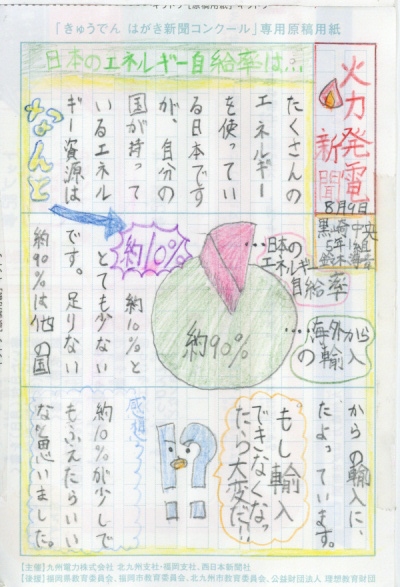 「きゅうでん はがき新聞コンクール」専用原稿用紙
日本のエネルギー自給率は…
火力発電
新聞
8月9日
黒崎中央
5年1組
たくさんの
エネルギー
を使ってい
る日本です
が、自分の
国が持って
いるエネル
ギー資源は
なんと
約10%
約10%と
とても少ない
です。足りない
約90%は他の国
…日本の
エネルギー
自給率
約90%
…海外から
の輸入
からの輸入に、
たよっています。
もし輸入
できなくなっ
たら大変だ!!
!?
感想
約10%が少しで
もふえたらいい
なと思いました。
【主催】九州電力株式会社 北九州支社・福岡支社、西日本新聞社
【後援】福岡県教育委員会、福岡市教育委員会、北九州市教育委員会、公益財団法人 理想教育財団